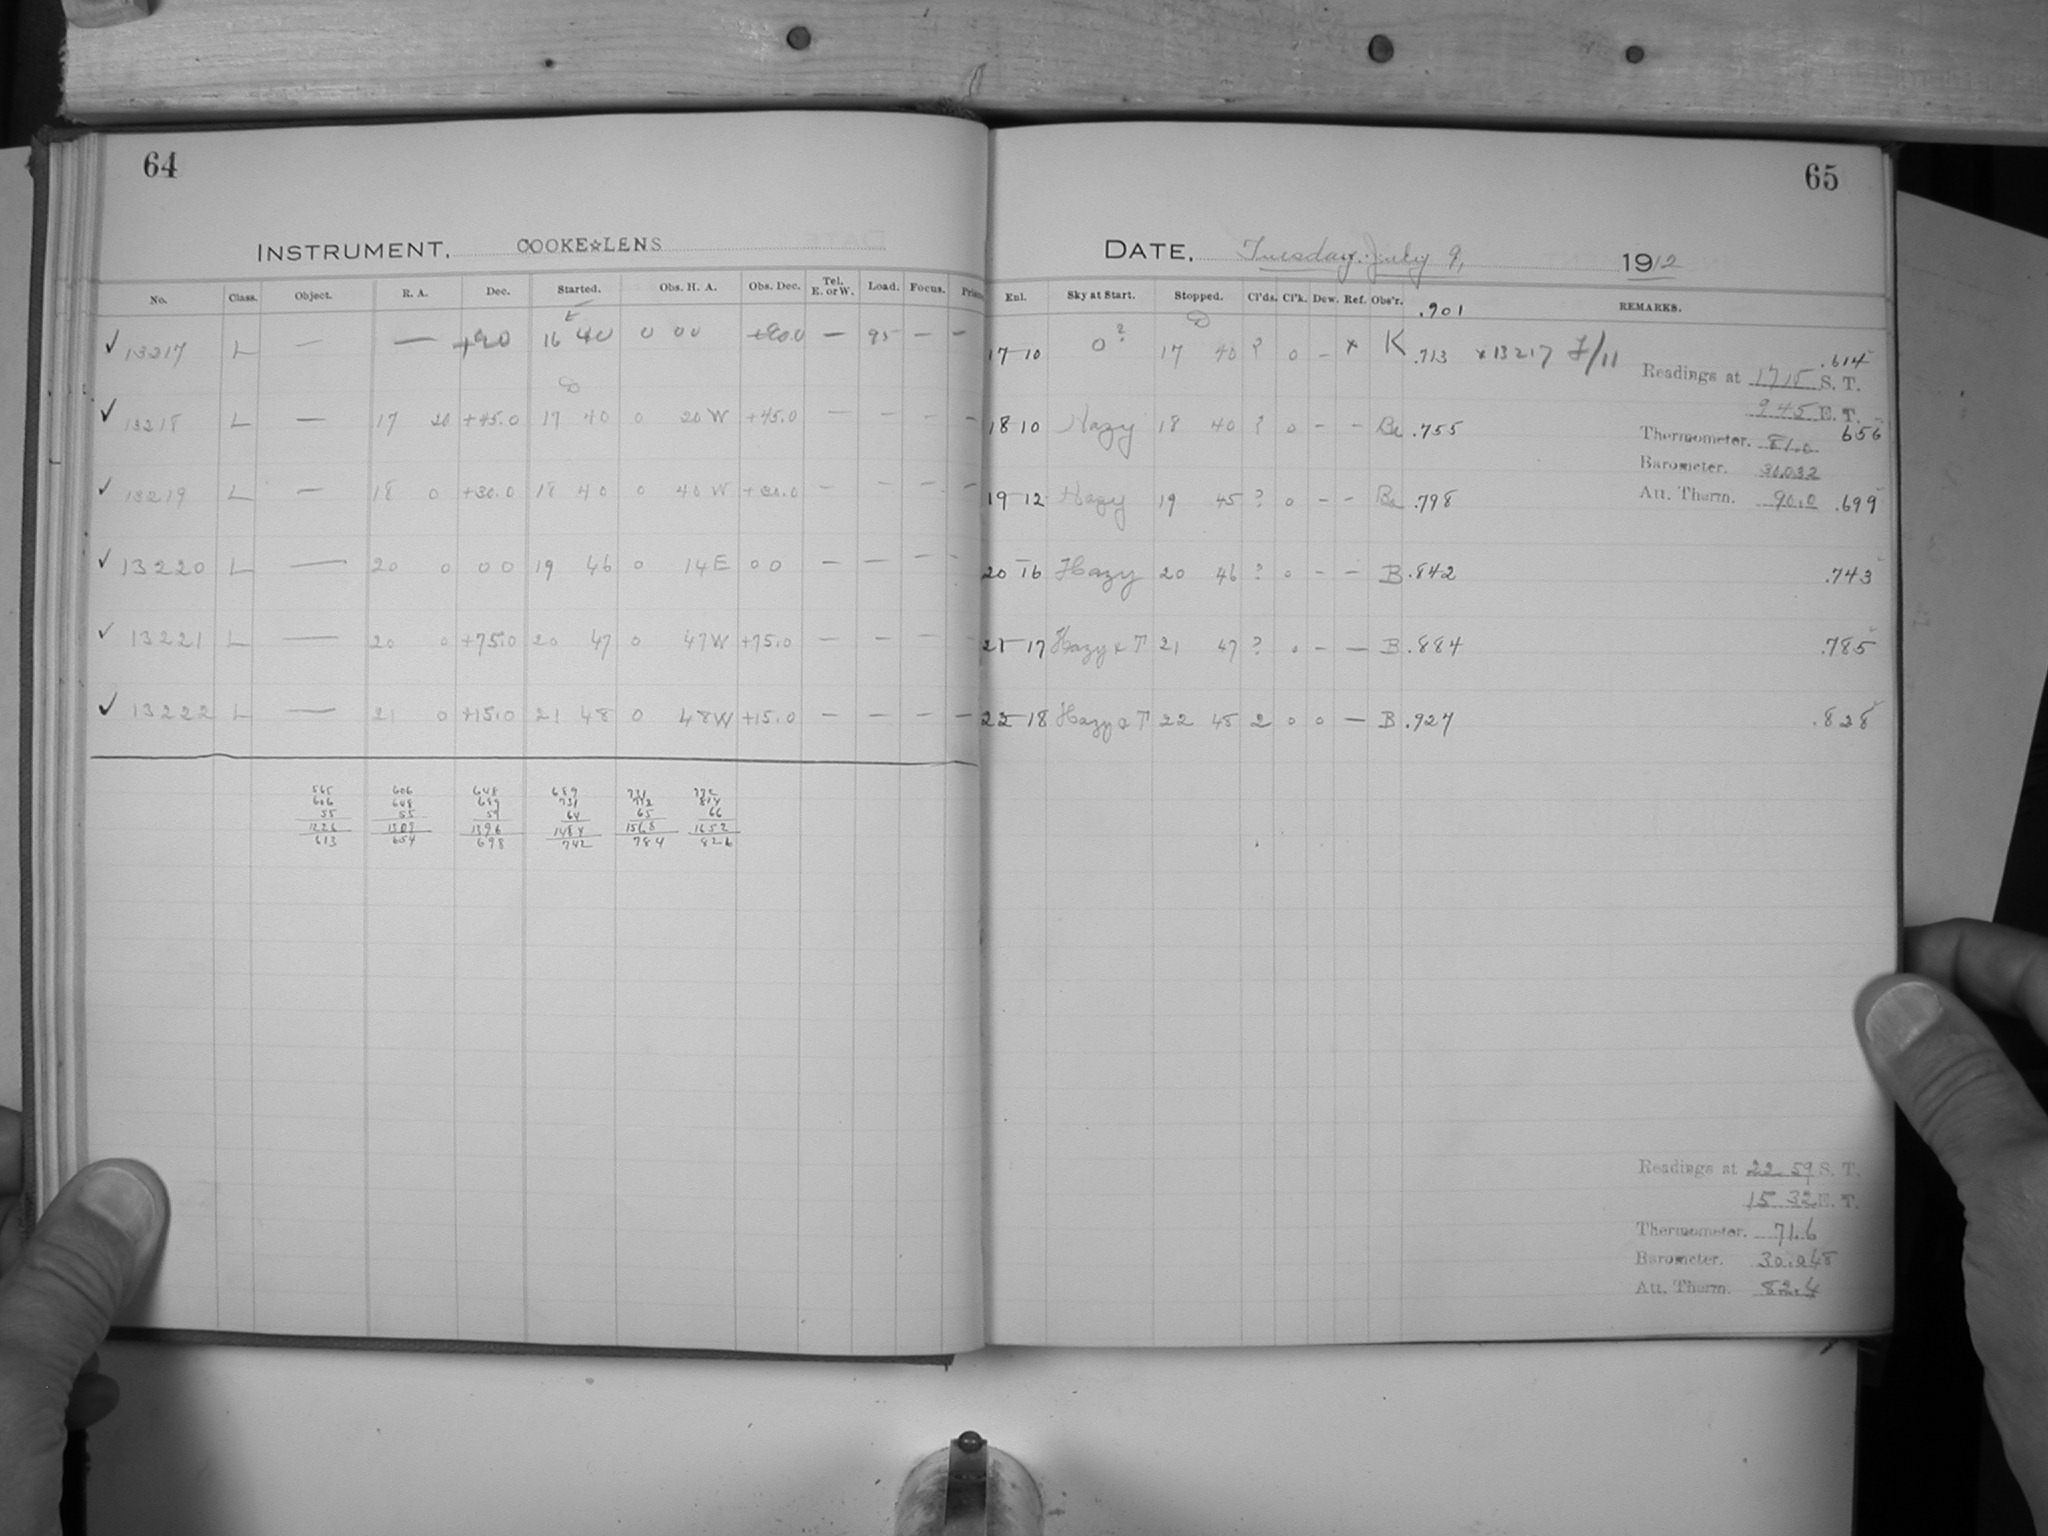 64
INSTRUMENT, COOKE☆LENS
No. Class. Object. R. A. Dec. Started. Obs. H. A. Obs. Dec. Tel. E. or W. Load. Focus. Prism
✓ 13217 L — — +90 16 40 0 00 +90.0 — 95 — —
✓ 13218 L — 17 20 +45.0 17 40 0 20 W +45.0 — — — —
✓ 13219 L — 18 0 +30.0 18 40 0 40 W +30.0 — — — —
✓ 13220 L — 20 0 0 0 19 46 0 14 E 0 0 — — — —
✓ 13221 L — 20 0 +75.0 20 47 0 47 W +75.0 — — — —
✓ 13222 L — 21 0 +15.0 21 48 0 48 W +15.0 — — — —
565 606 648 689 731 772
606 648 689 731 772 814
55 55 59 64 65 66
1226 1309 1396 1484 1568 1652
613 654 698 742 784 826
65
DATE, Tuesday, July 9, 1912
Exl. Sky at Start. Stopped. Cl'ds. Cl'k. Dew. Ref. Obs'r. .901 REMARKS.
17 10 0? 17 40 ? 0 – x K .713 x13217 F/11 .614
Readings at 17 15 S. T.
9 45 E. T.
18 10 Hazy 18 40 ? 0 – – Ba .755 656
Thermometer. 81.0
Barometer. 30.032
19 12 Hazy 19 45 ? 0 – – Ba .798 Att. Therm. 90.0 .699
20 16 Hazy 20 46 ? 0 – – B .842 .743
21 17 Hazy & T 21 47 ? 0 – — B .884 .785
22 18 Hazy & T 22 48 2 0 0 — B .927 .828
Readings at 22 59 S. T.
15 32 E. T.
Thermometer. 71.6
Barometer. 30.048
Att. Therm. 82.4